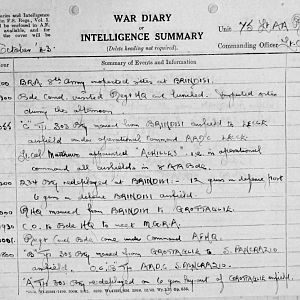 WAR DIARY
or
INTELLIGENCE SUMMARY
(Delete heading not required).
Unit
75
Commanding Officer
October '43
Summary of Events and Information
BRA, 8th Army inspected sites at BRINDISI.
Bde Comd. visited Regt HQ and lunched. Inspected sites
during the afternoon.
'C' Tp 303 Bty moved from BRINDISI airfield to LECCE
airfield under operational command AADC LECCE
appointed "ACHILLES" i.e. in operational
command all airfields in 8 AA Bde.
234 Bty redeployed at BRINDISI - 12 guns in defence port
6 guns in defence BRINDISI airfield.
RHQ moved from BRINDISI to GROTTAGLIE.
C.O. to Bde HQ to meet M.G.R.A.
Regt and Bde come under command AFHQ.
'B' Tp 303 Bty moved from GROTTAGLIE to S. PANCRAZIO
airfield. O.C. 'B' Tp AADC S. PANCRAZIO.
'A' Tp 303 Bty redeployed on 6 gun lay-out of GROTTAGLIE airfield.